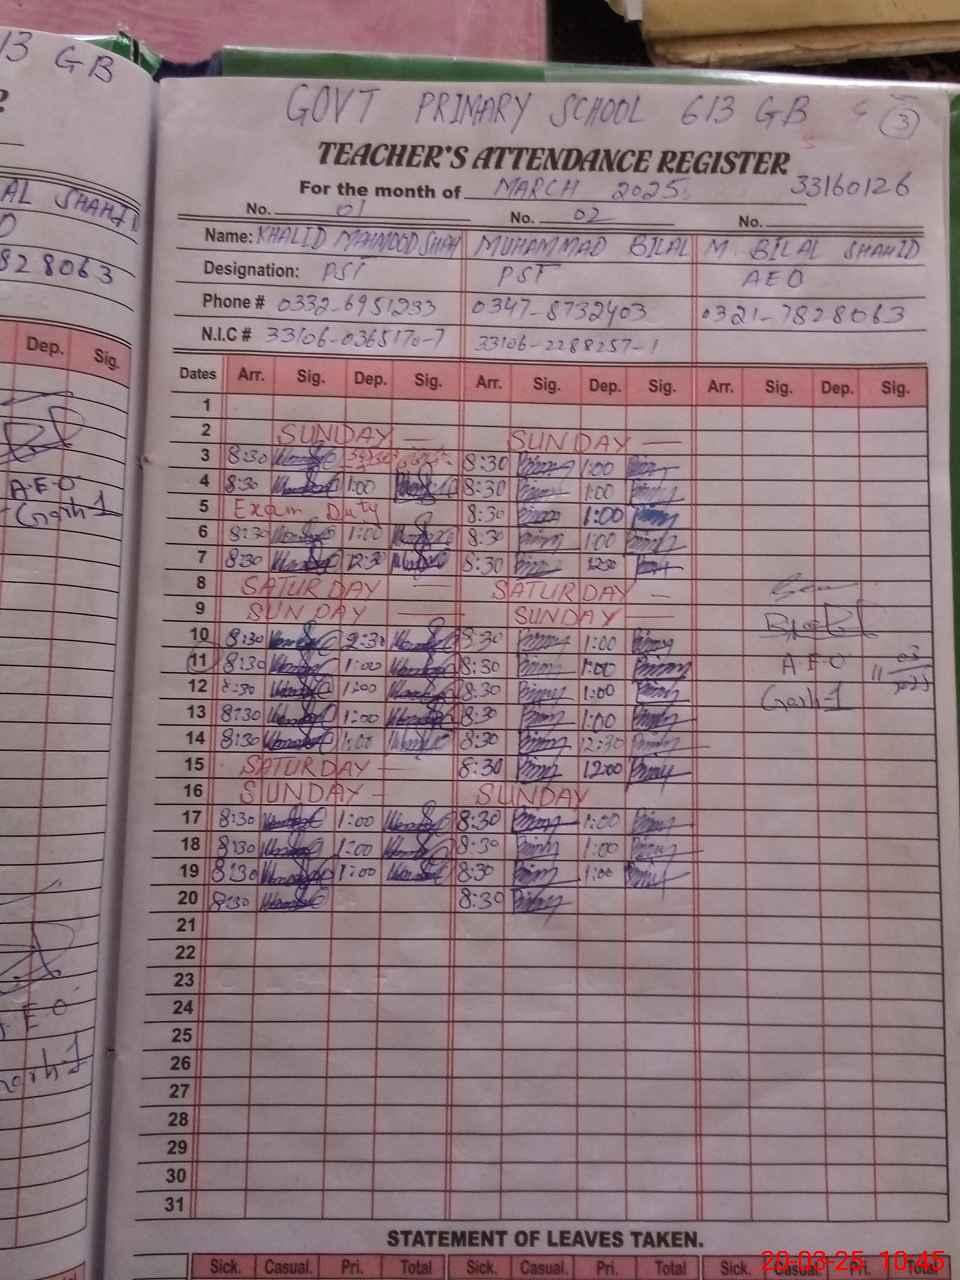 13 GB
AL SHAHID
828063
Dep. Sig.
A.E.O
Garh 1
GOVT PRIMARY SCHOOL 613 GB
3
TEACHER'S ATTENDANCE REGISTER
For the month of MARCH 2025. 33160126
No. 01 No. 02 No.
Name: KHALID MAHMOOD SHAH MUHAMMAD BILAL M. BILAL SHAHID
Designation: PST PST AEO
Phone # 0332-6951233 0347-8732403 0321-7828063
N.I.C # 33106-0365170-7 33106-2288257-1
Dates Arr. Sig. Dep. Sig. Arr. Sig. Dep. Sig. Arr. Sig. Dep. Sig.
1
2 SUNDAY — SUNDAY —
3 8:30 8:30 1:00
4 8:30 1:00 8:30 1:00
5 Exam Duty 8:30 1:00
6 8:30 1:00 8:30 1:00
7 8:30 12:30 8:30 12:30
8 SATURDAY — SATURDAY —
9 SUNDAY — SUNDAY —
10 8:30 2:30 8:30 1:00
11 8:30 1:00 8:30 1:00 A.E.O 11 03
12 8:30 1:00 8:30 1:00 Garh 1 2025
13 8:30 1:00 8:30 1:00
14 8:30 1:00 8:30 12:30
15 SATURDAY — 8:30 12:00
16 SUNDAY — SUNDAY
17 8:30 1:00 8:30 1:00
18 8:30 1:00 8:30 1:00
19 8:30 1:00 8:30 1:00
20 8:30 8:30
21
22
23
24
25
26
27
28
29
30
31
STATEMENT OF LEAVES TAKEN.
Sick. Casual. Pri. Total Sick. Casual. Pri. Total Sick. Casual. Pri. Total
20-03-25, 10:45